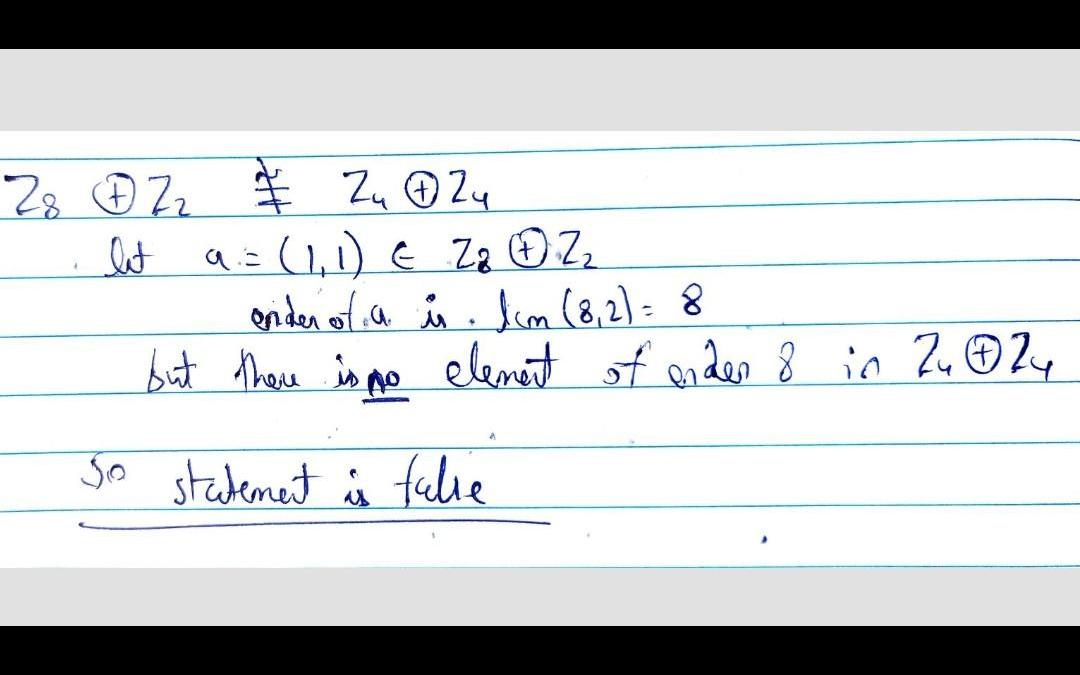 Z₈ ⊕ Z₂ ≇ Z₄ ⊕ Z₄
let a = (1,1) ∈ Z₈ ⊕ Z₂
order of a is . lcm (8,2) = 8
but there is no element of order 8 in Z₄ ⊕ Z₄
So statement is false